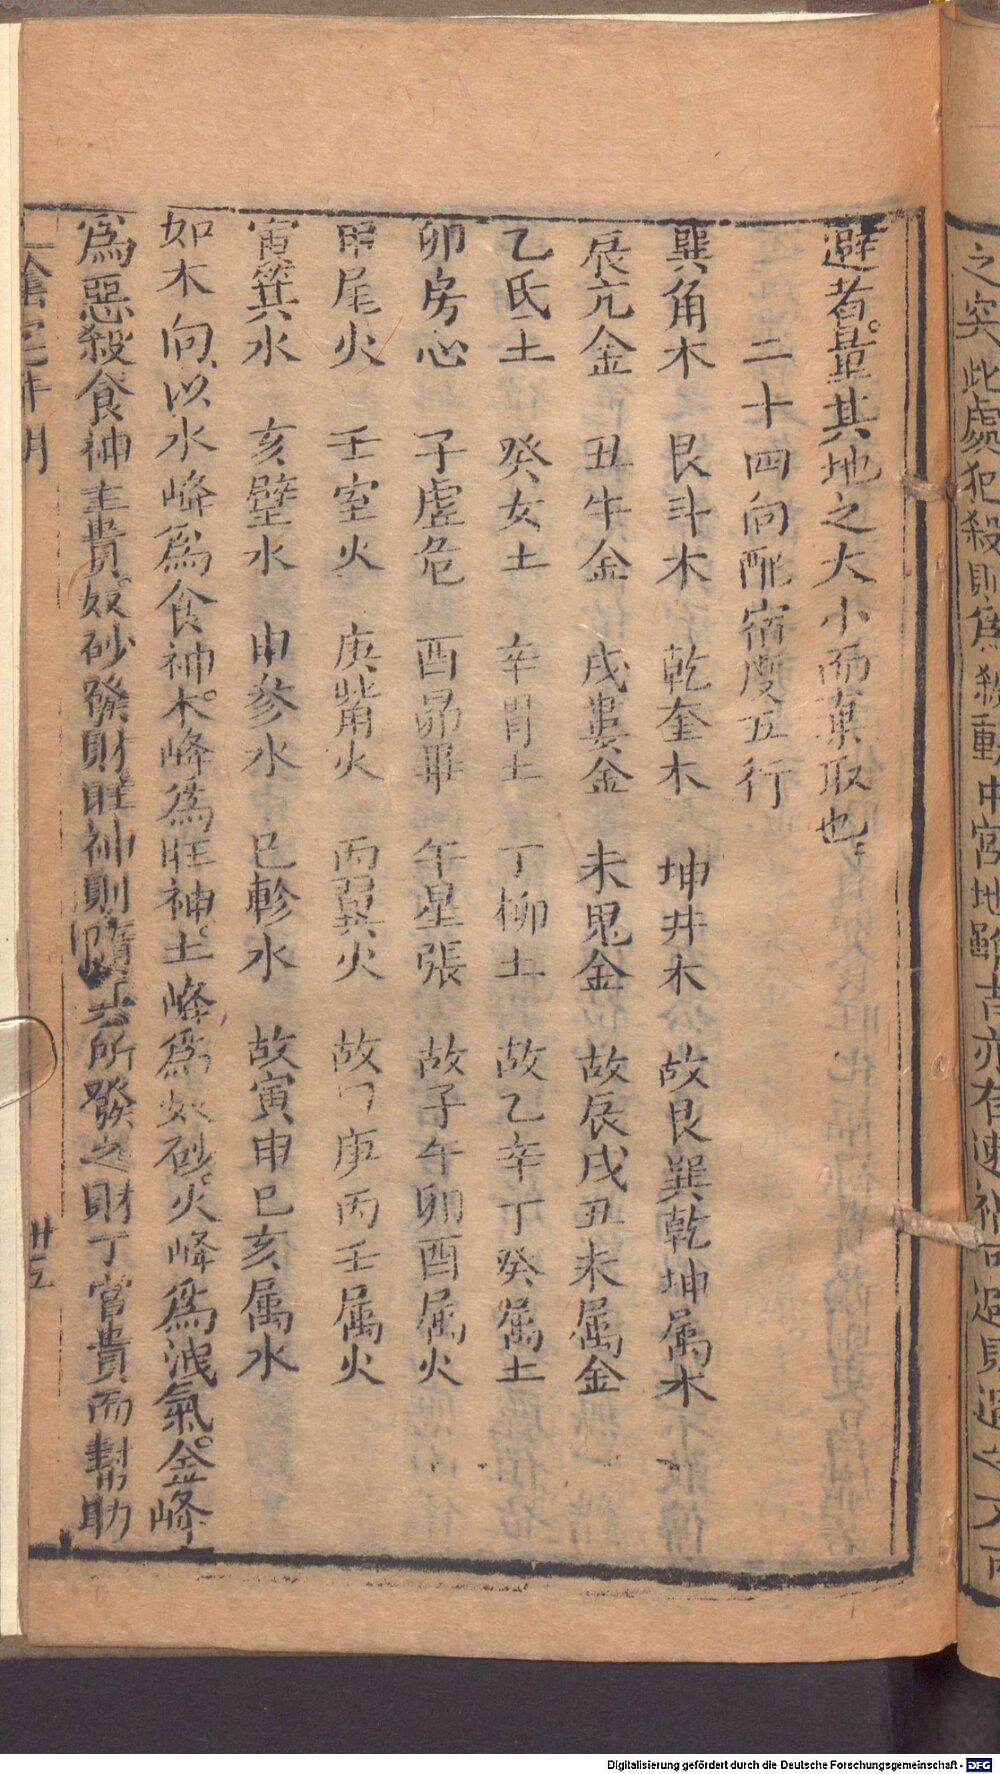 之突此處犯殺則為殺動中宮地雖吉亦有速禍可避則避之大可
避者量其地之大小而棄取也
二十四向配宿度五行
巽角木 艮斗木 乾奎木 坤井木 故艮巽乾坤属木
辰亢金 丑牛金 戌婁金 未鬼金 故辰戌丑未属金
乙氐土 癸女土 辛胃土 丁柳土 故乙辛丁癸属土
卯房心 子虛危 酉昴畢 午星張 故子午卯酉属火
甲尾火 壬室火 庚觜火 丙翼火 故甲庚丙壬属火
寅箕水 亥壁水 申參水 巳軫水 故寅申巳亥属水
如木向以水峰為食神。木峰為旺神。土峰為奴砂。火峰為洩氣。金峰
為惡殺食神主貴奴砂發財旺神則隨其所發之財丁富貴而幫助
廿五
Digitalisierung gefördert durch die Deutsche Forschungsgemeinschaft - DFG